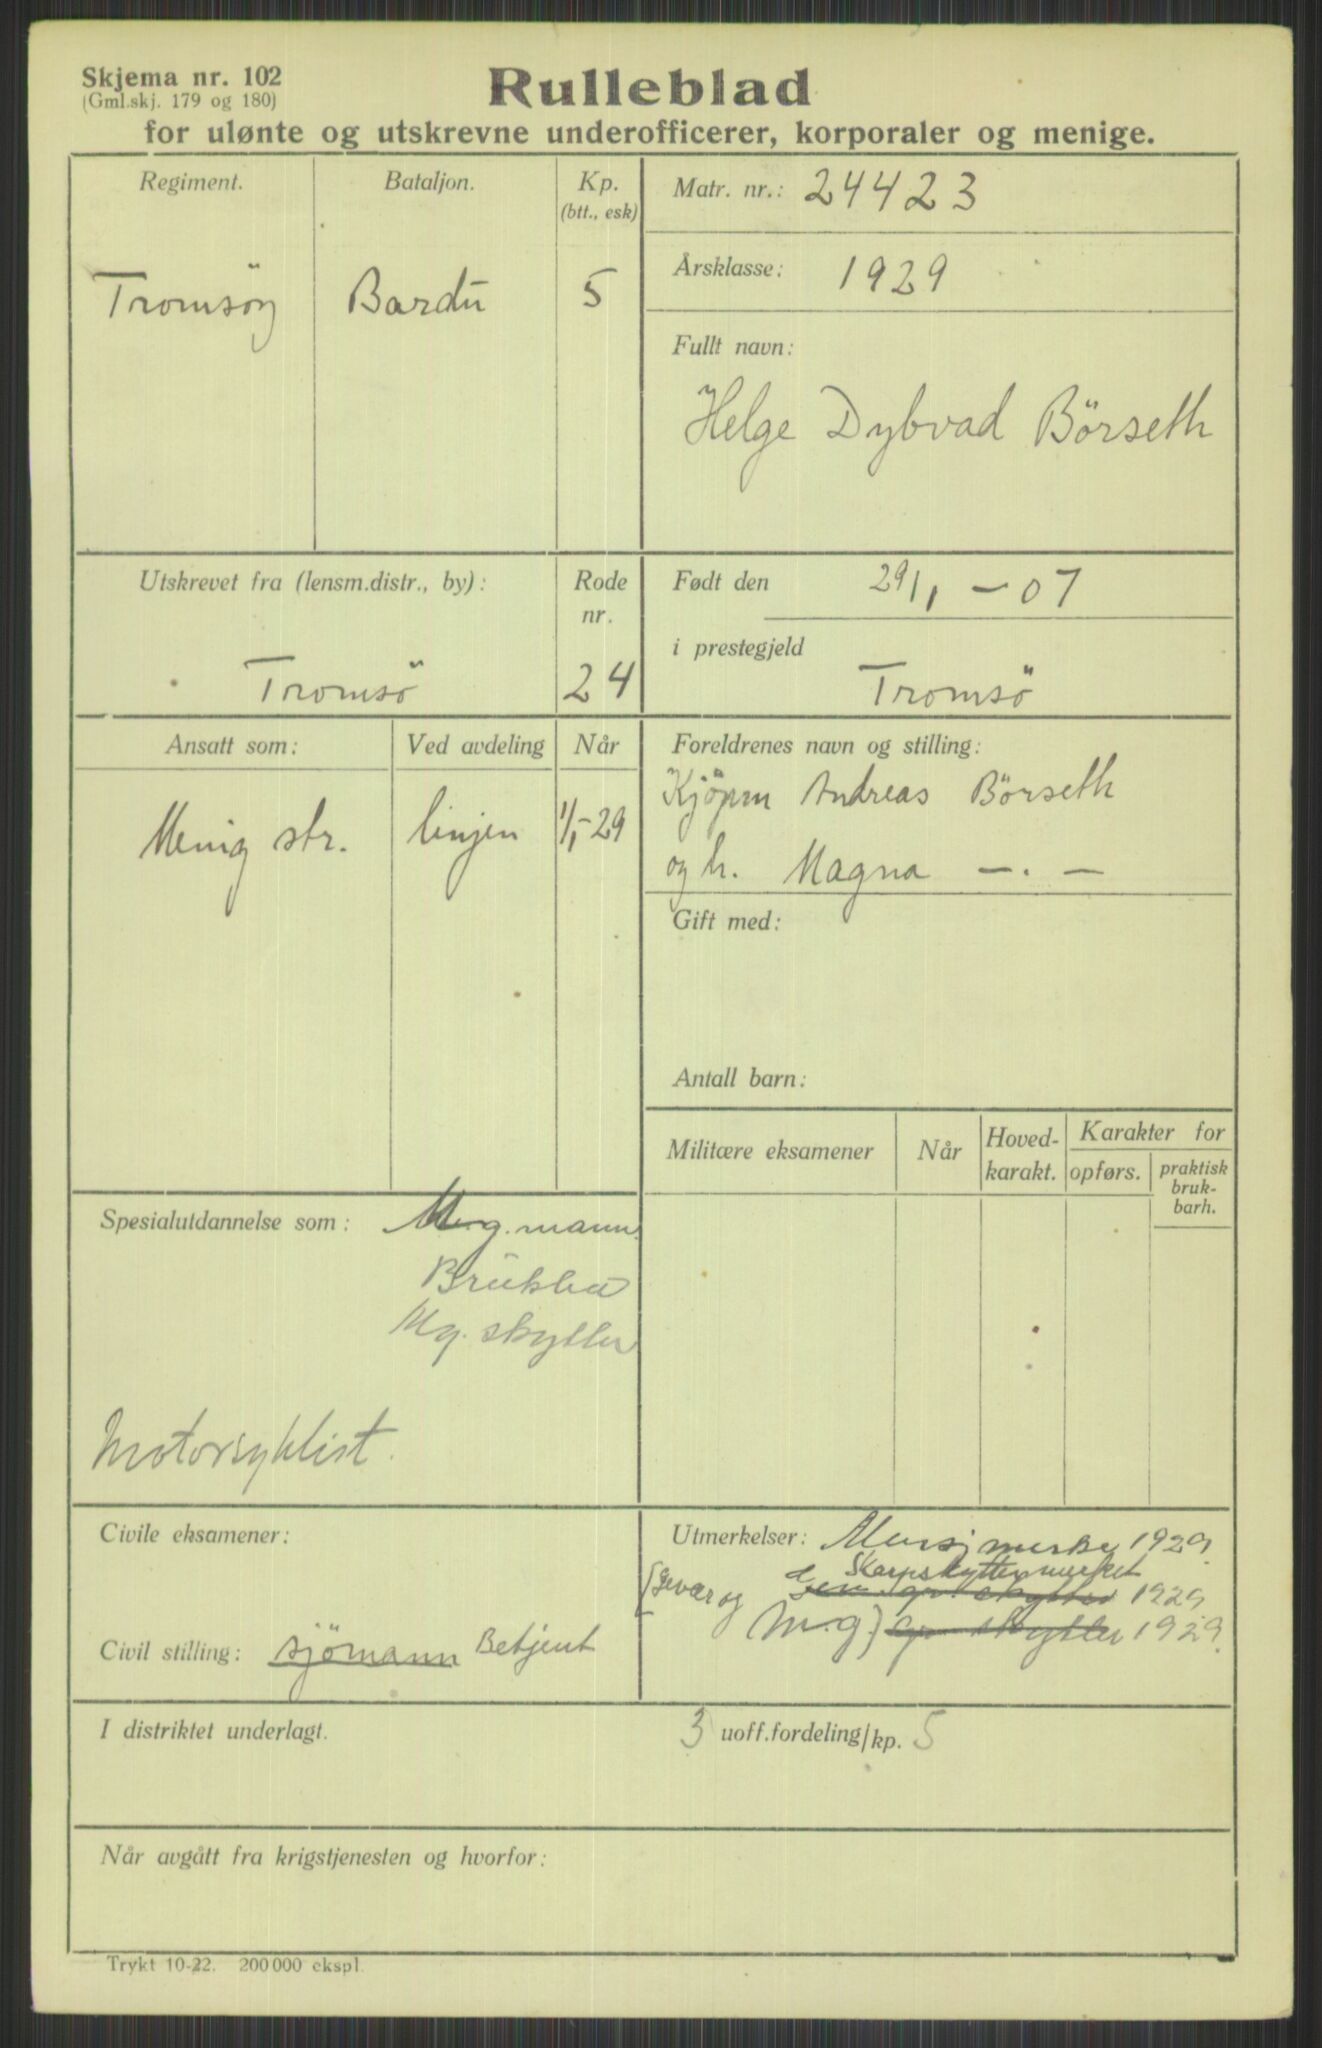 Skjema nr. 102
(Gml.skj. 179 og 180)
Rulleblad
for ulønte og utskrevne underofficerer, korporaler og menige.
Regiment.
Bataljon.
Kp.
(btt., esk)
Tromsöy
Bardu
5
Matr. nr.: 24423
Årsklasse: 1929
Fullt navn:
Helge Dybvad Börseth
Utskrevet fra (lensm.distr., by):
Tromsö
Rode
nr.
24
Født den 29/1 - 07
i prestegjeld
Tromsö
Ansatt som:
Ved avdeling
Når
Menig str.
linjen
1/1-29
Foreldrenes navn og stilling:
Kjöpm Andreas Börseth
og h. Magna -.-
Gift med:
Antall barn:
Militære eksamener
Når
Hoved-
karakt.
Karakter for
opførs.
praktisk
bruk-
barh.
Spesialutdannelse som: M.g. mann.
Mg. skytter
Motorsyklist.
Civile eksamener:
Civil stilling: sjömann Betjent
Utmerkelser: Marsjmerke 1929.
Skarpskyttermerket
(gevær og 1929
M.g.) skytter 1929.
I distriktet underlagt.
3 uoff.fordeling/kp. 5
Når avgått fra krigstjenesten og hvorfor:
Trykt 10-22. 200000 ekspl.